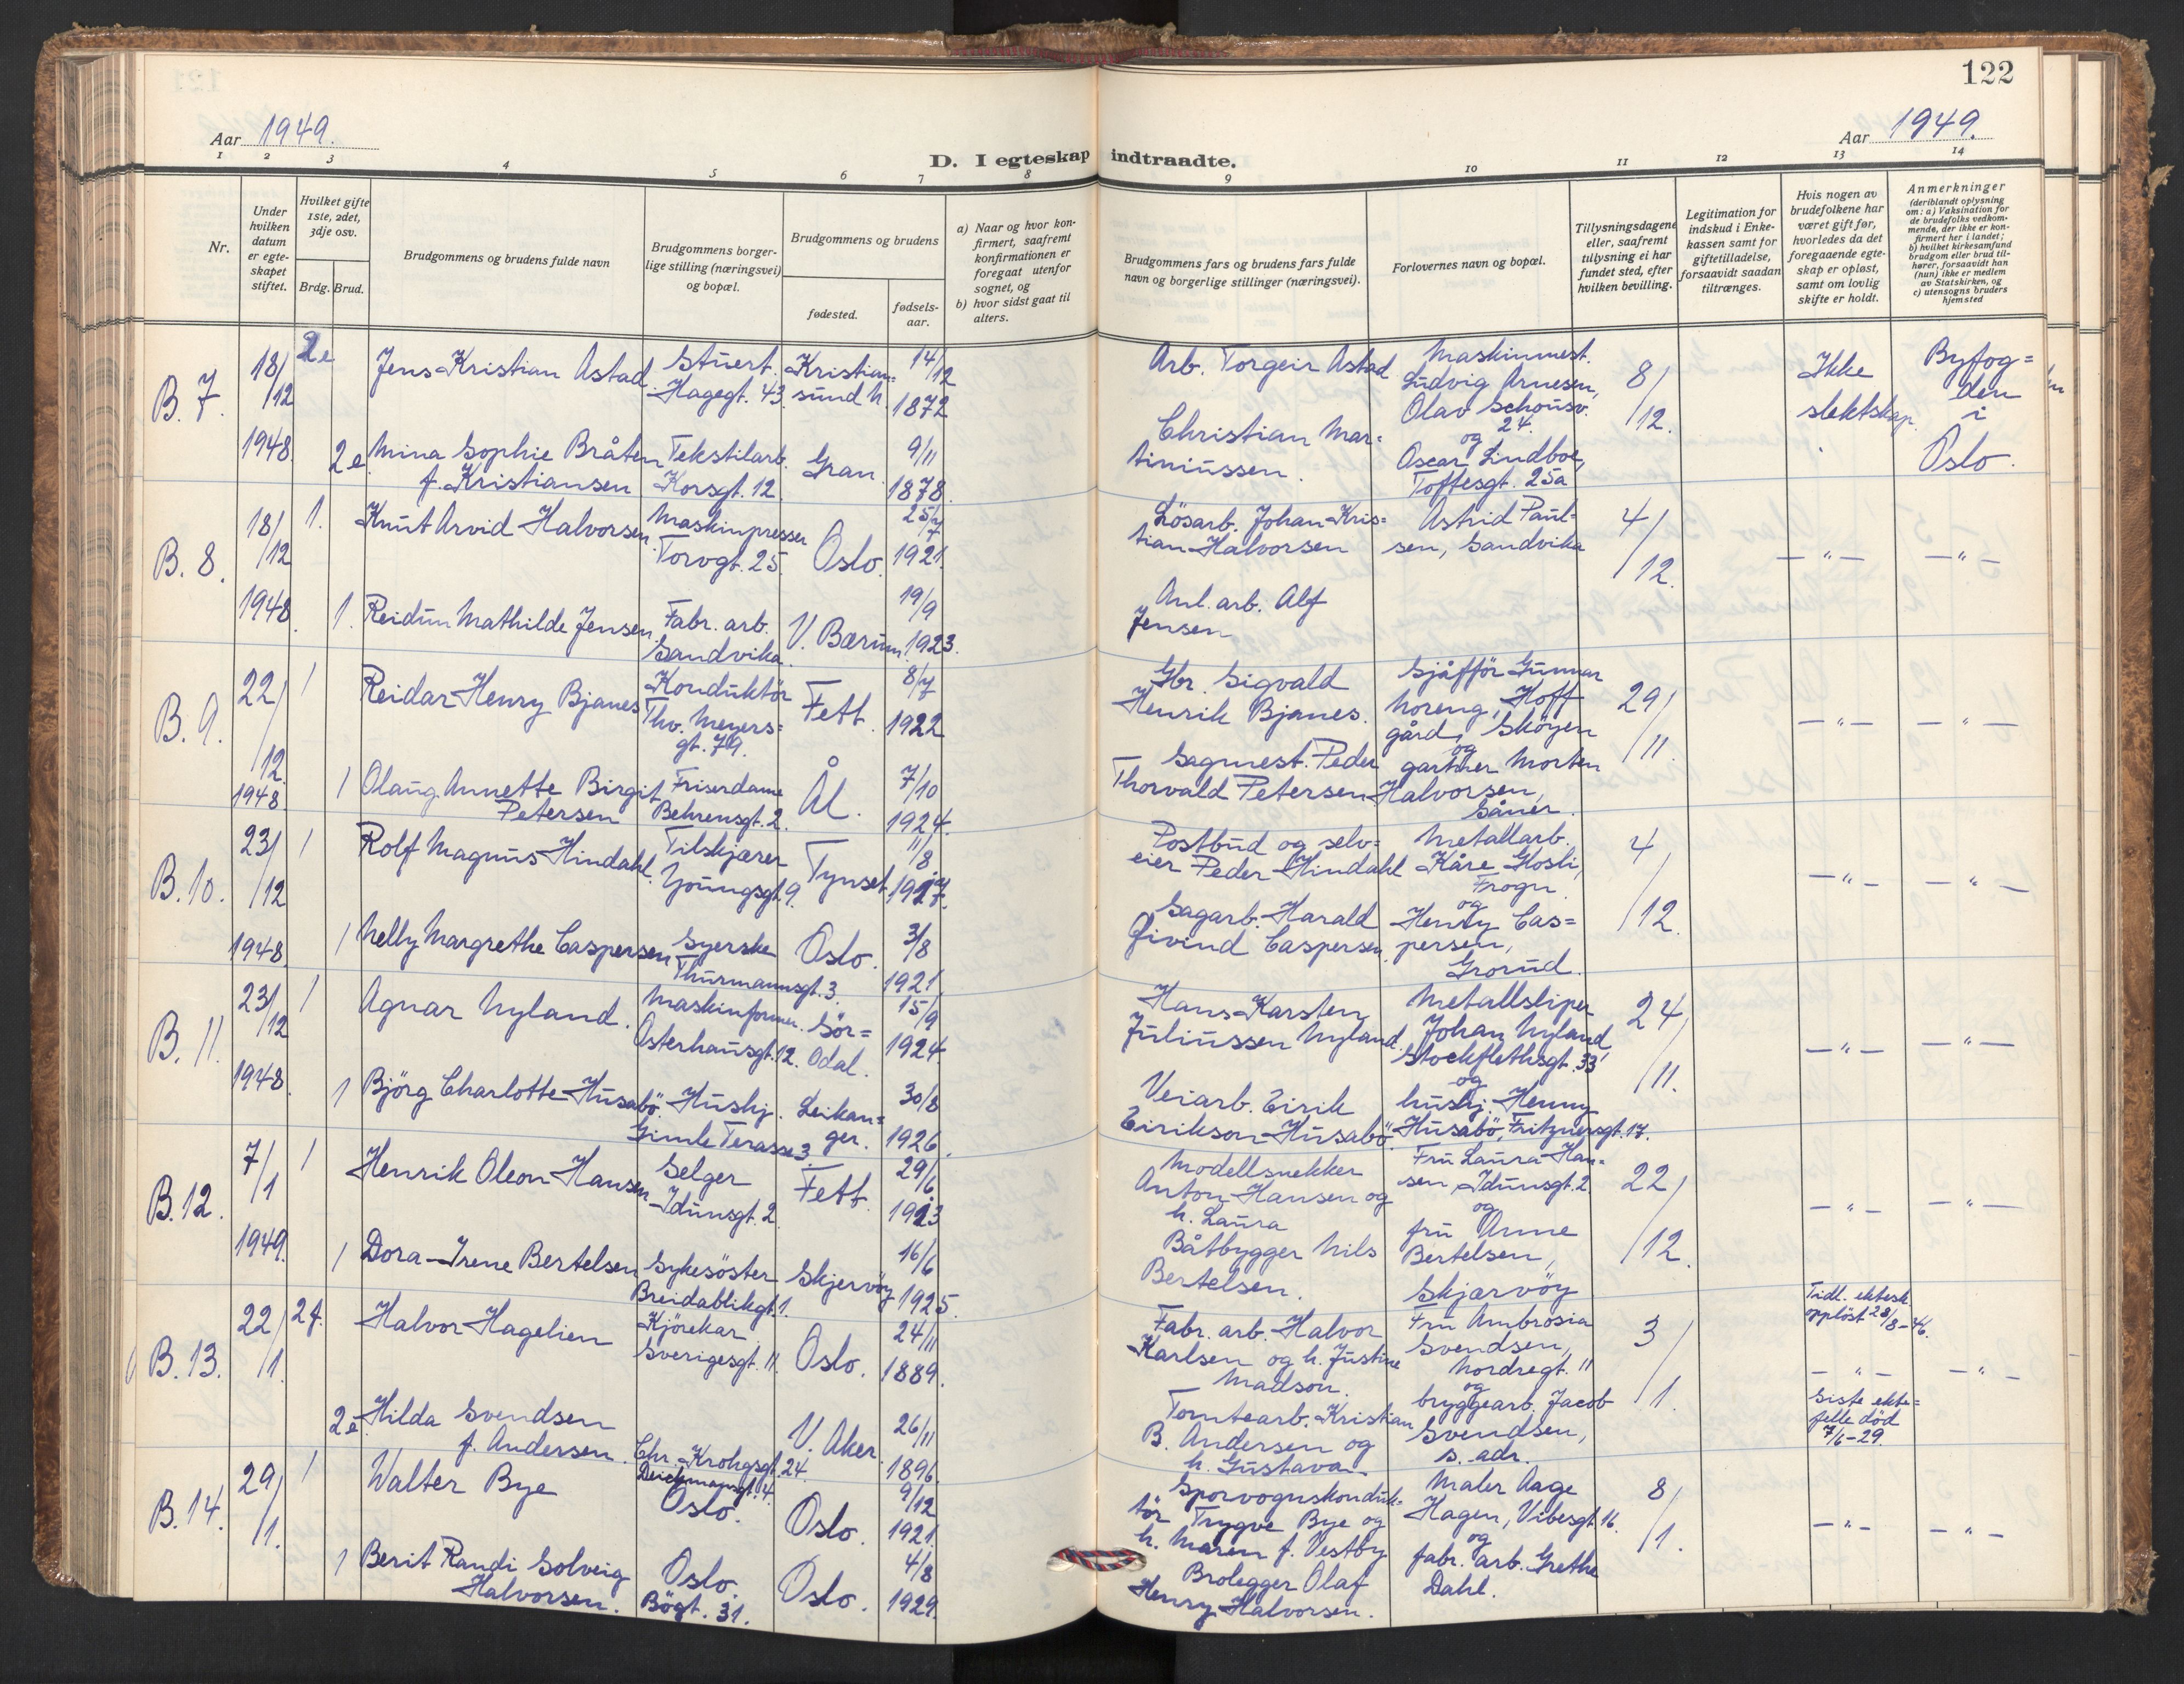 122
Aar 1949.
Aar 1949.
D. I egteskap indtraadte.
1 2 3 4 5 6 7 8 9 10 11 12 13 14
Nr.
Under hvilken datum er egteskapet stiftet.
Hvilket gifte 1ste, 2det, 3dje osv.
Brdg. Brud.
Brudgommens og brudens fulde navn
Brudgommens borgerlige stilling (næringsvei) og bopæl.
Brudgommens og brudens
fødested.
fødselsaar.
a) Naar og hvor konfirmert, saafremt konfirmationen er foregaat utenfor sognet, og
b) hvor sidst gaat til alters.
Brudgommens fars og brudens fars fulde navn og borgerlige stillinger (næringsvei).
Forlovernes navn og bopæl.
Tillysningsdagene eller, saafremt tillysning ei har fundet sted, efter hvilken bevilling.
Legitimation for indskud i Enkekassen samt for giftetilladelse, forsaavidt saadan tiltrænges.
Hvis nogen av brudefolkene har været gift før, hvorledes da det foregaaende egteskap er opløst, samt om lovlig skifte er holdt.
Anmerkninger
(deriblandt oplysning om: a) Vaksination for de brudefolks vedkommende, der ikke er konfirmert her i landet;
b) hvilket kirkesamfund brudgom eller brud tilhører, forsaavidt han (hun) ikke er medlem av Statskirken, og
c) utensogns bruders hjemsted
B. 7. 18/12 1948 2e Jens Kristian Astad Stuert. Hagegt. 43. Kristiansund N. 14/12 1872
Arb. Torgeir Astad Maskinmest. Ludvig Arnesen, Olav Schousv. 24. og 8/12. Ikke slektskap. Byfogden i Oslo.
2e Mina Sophie Bråten f. Kristiansen Tekstilarb. Korsgt. 12 Gran 9/11 1878.
Christian Martiniussen. Oscar Lindboe, Toftesgt. 25a
B. 8. 18/12 1948. 1. Knut Arvid Halvorsen Maskinpresser Torvgt. 25. Oslo. 25/7 1921.
Lösarb. Johan Kristian Halvorsen Astrid Paulsen, Sandvika 4/12. — " — — " —
1. Reidun Mathilde Jensen. Fabr. arb. Sandvika. V. Bærum. 19/9 1923.
Anl. arb. Alf Jensen
B. 9. 22/12 1948. 1 Reidar Henry Bjanes Konduktör Thv. Meyersgt. 79. Fett. 8/7 1922
Gbr. Sigvald Henrik Bjanes. Sjåfför Gunnar Noreng, Hoff gård, Sköyen og 29/11. — " — — " —
1 Olaug Annette Birgit Petersen Friserdame Behrensgt. 2. Ål. 7/10 1924.
Sagmest. Peder Thorvald Petersen gartner Morten Halvorsen, Såner.
B. 10. 23/12 1948. 1 Rolf Magnus Hindahl. Tilskjærer Youngsgt. 9. Tynset 11/8 1917.
Postbud og selveier Peder Hindahl Metallarb. Kåre Hosli, Frogn og 4/12. — " — — " —
1 Nelly Margrethe Caspersen Syerske Thurmannsgt. 3. Oslo. 3/8 1921
Sagarb. Harald Øivind Caspersen. Henry Caspersen, Grorud.
B. 11. 23/12 1948. 1 Agnar Nyland. Maskinformer. Osterhausgt. 12. Sör-Odal. 15/9 1924
Hans Karsten Juliussen Nyland. Metallsliper Johan Nyland Stockflethsgt. 33 og 24/11. — " — — " —
1 Björg Charlotte Husabö. Hushj. Gimle Terasse 3. Leikanger. 30/8 1926.
Veiarb. Eirik Eirikson Husabö. hushj. Henny Husabö, Fritznersgt. 17.
B. 12. 7/1 1949. 1 Henrik Oleon Hansen Selger Idunsgt. 2. Fett. 29/6 1923
Modellsnekker Anton Hansen og h. Laura Fru Laura Hansen, Idunsgt. 2. og 22/12. — " — — " —
1 Dora Irene Bertelsen Sykesöster Breidablikgt. 1. Skjervöy 16/6 1925.
Båtbygger Nils Bertelsen. fru Anne Bertelsen, Skjærvöy
B. 13. 22/1. 2f. Halvor Hagelien Kjörekar Sverigesgt. 11. Oslo. 24/11 1889.
Fabr. arb. Halvor Karlsen og h. Justine Madson. Fru Ambrosia Svendsen, Nordregt. 11 og 3/1. Tidl. ektesk. opplöst 28/8-46. — " — — " —
2e Hilda Svendsen f. Andersen. Chr. Krohgsgt. 24. V. Aker. 26/11 1896.
Tomtearb. Kristian B. Andersen og h. Gustava. bryggearb. Jacob Svendsen, s. adr. Siste ektefelle död 7/6-29.
B. 14. 29/1. 1 Walter Bye Deichmansgt. 4. Oslo. Oslo. 9/12 1921.
Sporvognskonduktör Trygve Bye og h. Maren f. Vestby Maler Aage Hagen, Vibesgt. 16. og 8/1. — " — — " —
1 Berit Randi Solveig Halvorsen. Oslo. Bögt. 31. Oslo. 4/8 1929.
Brolegger Olaf Henry Halvorsen. fabr. arb. Grethe Dahl.